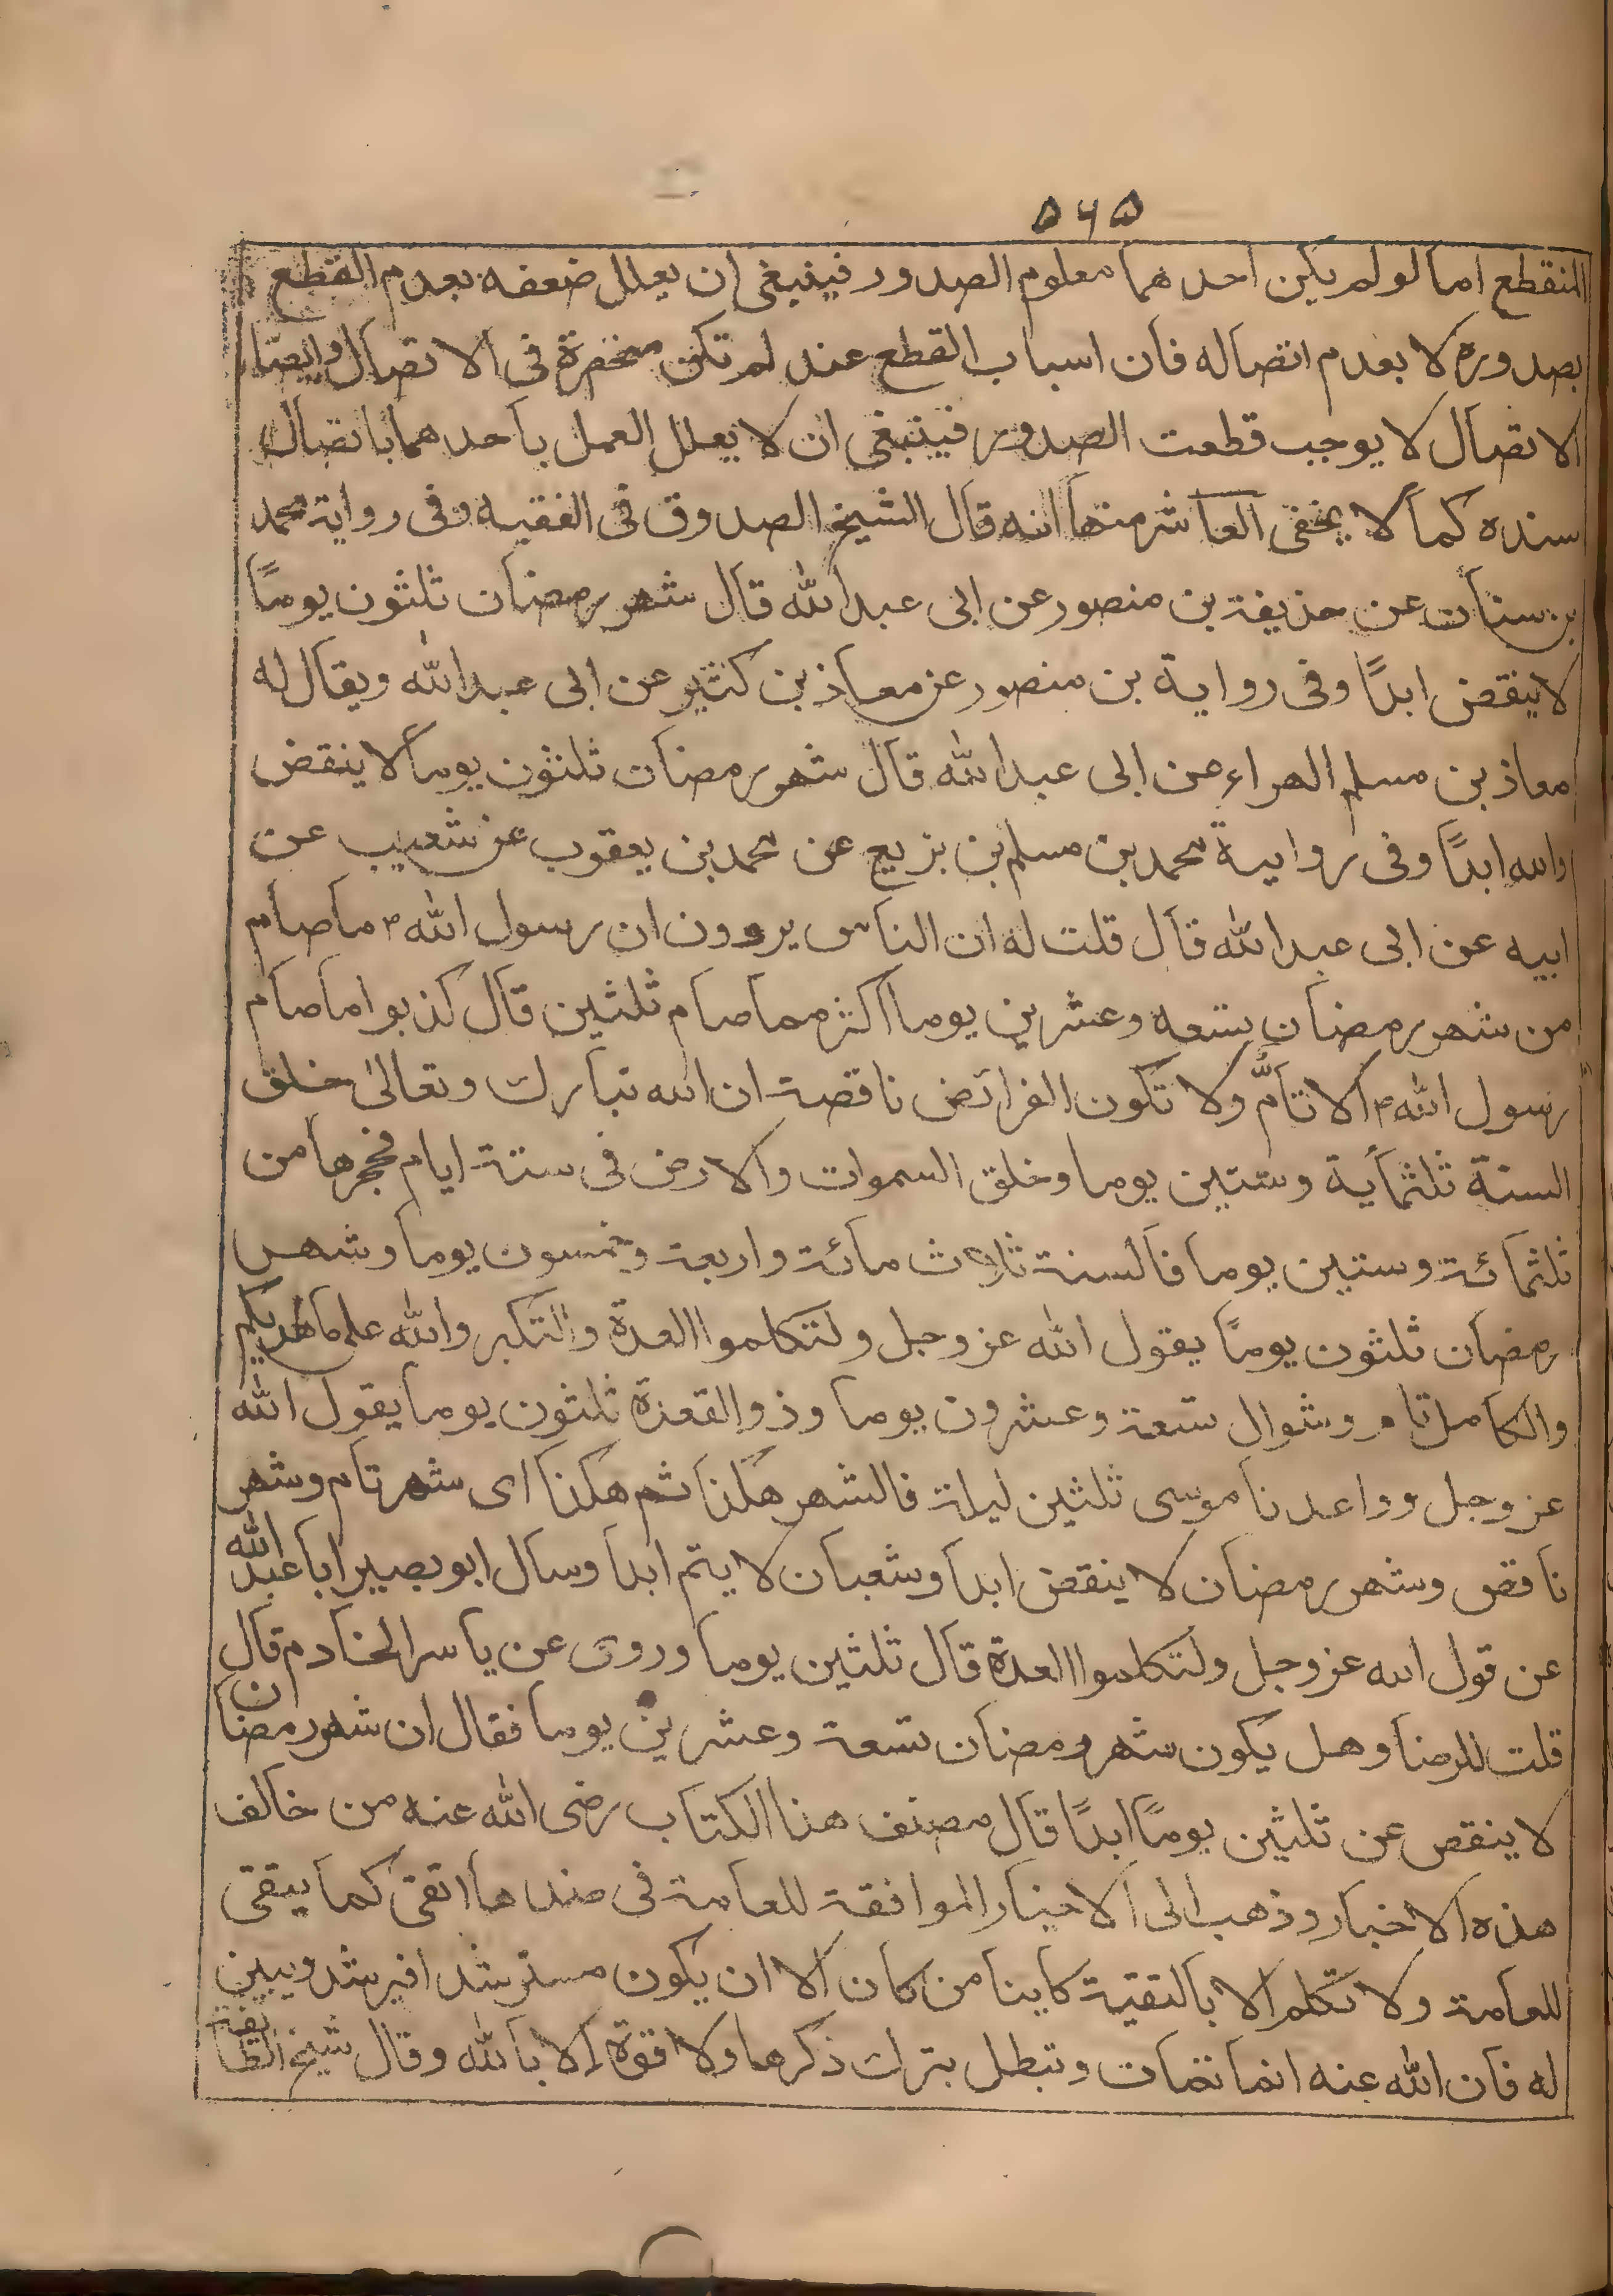 ٥٦٥
المنقطع اما لو لم يكن احدهما معلوم الصدور فينبغى ان يعلل ضعفه بعدم القطع
بصدوره لا بعدم اتصاله فان اسباب القطع عند لم تكن منحصرة فى الاتصال وايضا
الاتصال لا يوجب قطعت الصدور فينبغى ان لا يعلل العمل باحدهما باتصال
سنده كما لا يخفى العاشر منها انه قال الشيخ الصدوق فى الفقيه وفى رواية محمد
بن سنان عن حذيفة بن منصور عن ابى عبدالله قال شهر رمضان ثلثون يومًا
لا ينقض ابدًا وفى رواية بن منصور عن معاذ بن كثير عن ابى عبدالله ويقال له
معاذ بن مسلم الهراء عن ابى عبدالله قال شهر رمضان ثلثون يوما لا ينقض
والله ابدًا وفى رواية محمد بن مسلم بن بزيع عن محمد بن يعقوب عن شعيب عن
ابيه عن ابى عبدالله قال قلت له ان الناس يروون ان رسول الله م ما صام
من شهر رمضان تسعه وعشرين يوما اكثر مما صام ثلثين قال كذبوا ما صام
رسول الله م الا تامًّ ولا تكون الفرائض ناقصة ان الله تبارك وتعالى خلق
السنة ثلثمأية وستين يوما وخلق السموات والارض فى ستة ايام فحجرها من
ثلثمائة وستين يوما فالسنة ثلاث مائة واربعة وخمسون يوما وشهر
رمضان ثلثون يومًا يقول الله عز وجل ولتكلموا العدة والتكبر والله على ما هديكم
والكامل تام وشوال تسعة وعشرون يوما وذو القعدة ثلثون يوما يقول الله
عز وجل وواعدنا موسى ثلثين ليلة فالشهر هكذا ثم هكذا اى شهر تام وشهر
ناقص وشهر رمضان لا ينقض ابدا وشعبان لا يتم ابدا وسال ابو بصير ابا عبد الله
عن قول الله عز وجل ولتكلموا العدة قال ثلثين يوما وروى عن ياسر الخادم قال
قلت للرضا وهل يكون شهر رمضان تسعة وعشرين يوما فقال ان شهر رمضان
لا ينقص عن ثلثين يومًا ابدًا قال مصنف هذا الكتاب رضى الله عنه من خالف
هذه الاخبار وذهب الى الاخبار الموافقة للعامة فى ضدها اتقى كما يتقى
للعامة ولا تكلم الا بالتقية كاينا من كان الا ان يكون مسترشدا فيرشد ويبين
له فان الله عنه انما تمات وتبطل بترك ذكرها ولا قوة الا بالله وقال شيخ الطائفة